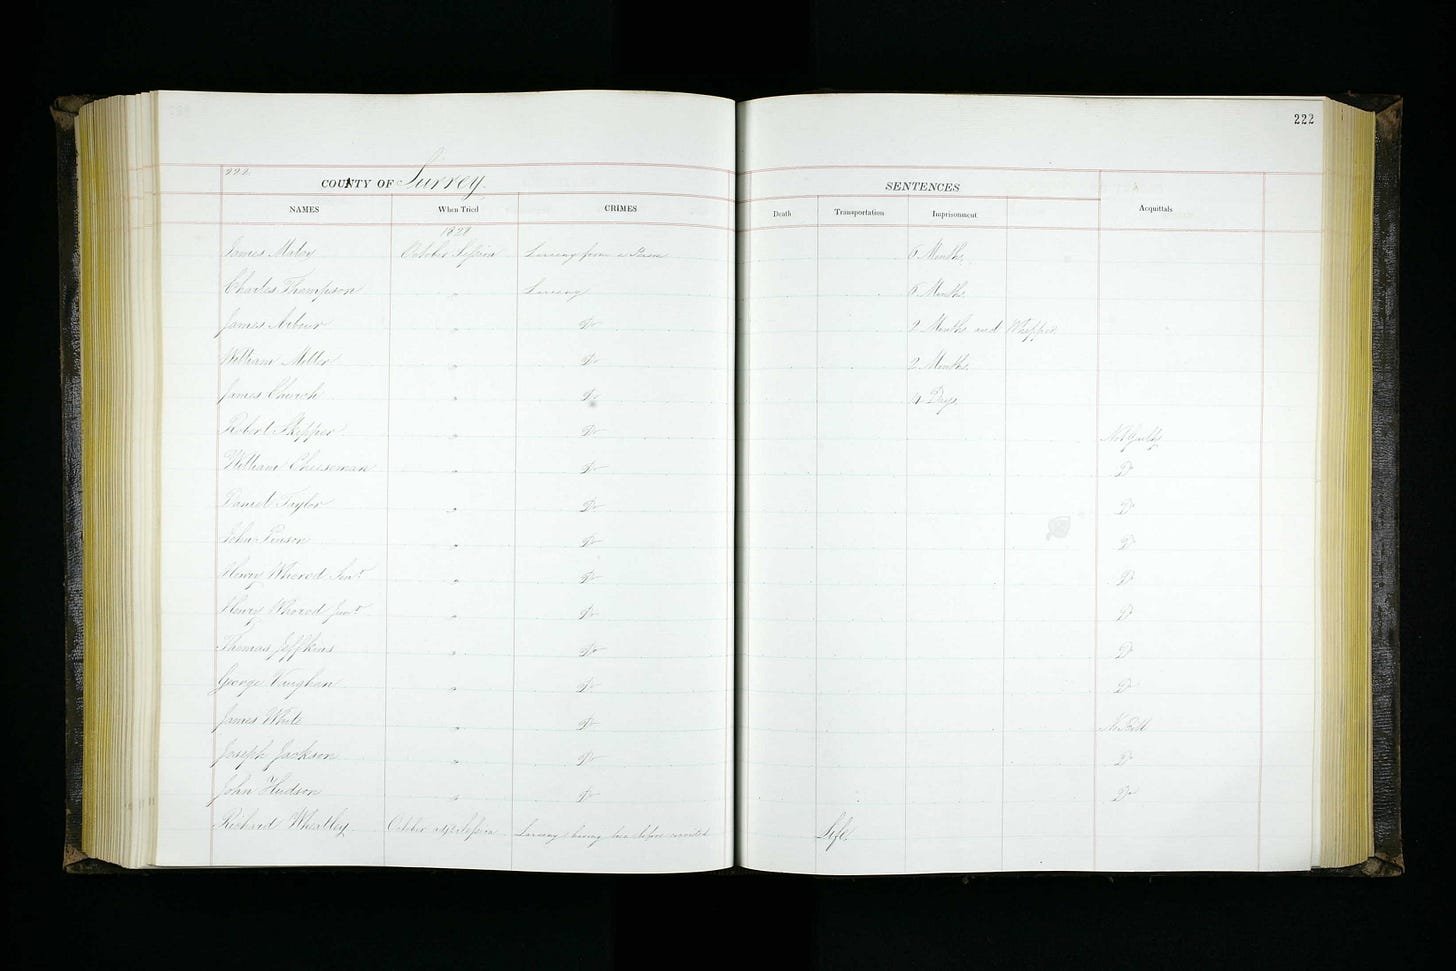 222
222
COUNTY OF Surrey. SENTENCES
NAMES When Tried CRIMES Death Transportation Imprisonment Acquittals
1828
James October Session Larceny from a Person 6 Months
Charles Thompson " Larceny 6 Months
James Arbour " Do 2 Months and Whipped
William Miller " Do 2 Months
James Church " Do Days
Robert Skipper " Do Not Guilty
William Cheeseman " Do Do
Daniel Taylor " Do Do
John Pinson " Do Do
Henry Wherod Senr " Do Do
Henry Whorod Junr " Do Do
Thomas Jeffkins " Do Do
George Vaughan " Do Do
James White " Do No Bill
Joseph Jackson " Do Do
John Hudson " Do Do
Richard Wheatley October adjd Session Larceny having been before convicted Life